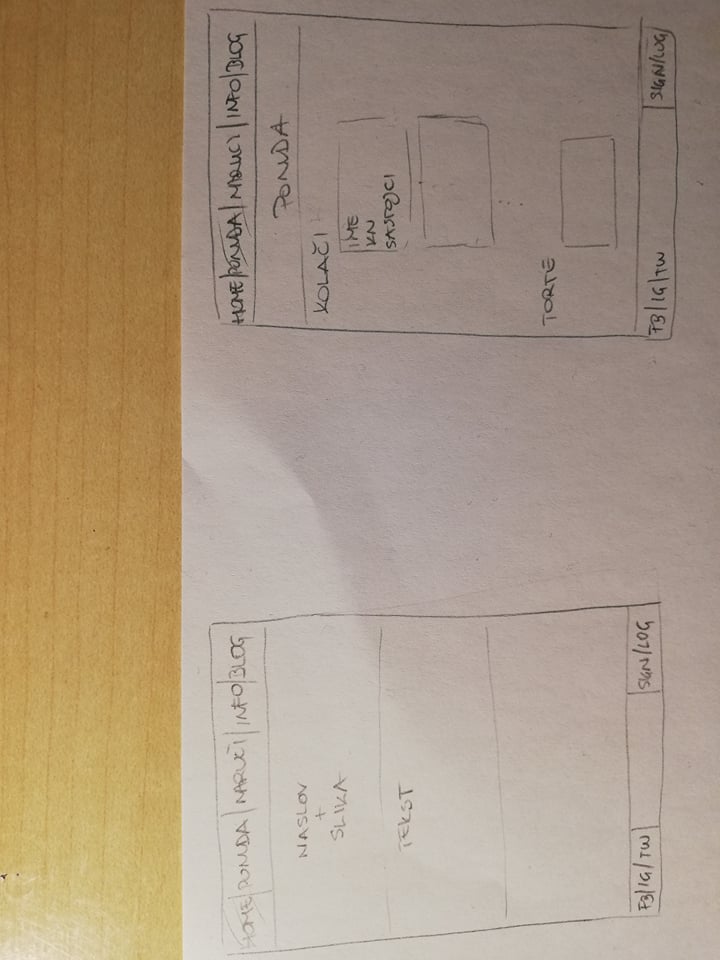 HOME | PONUDA | NARUČI | INFO | BLOG
NASLOV
+
SLIKA
TEKST
FB/IG/TW
SIGN/LOG
HOME | PONUDA | NARUČI | INFO | BLOG
PONUDA
KOLAČI
IME
KN
SASTOJCI
TORTE
FB/IG/TW
SIGN/LOG